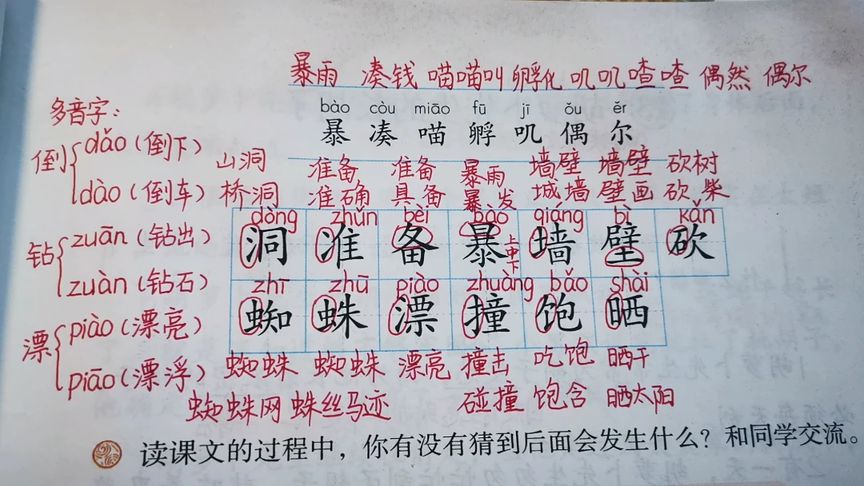 暴雨 凑钱 喵喵叫 孵化 叽叽喳喳 偶然 偶尔
bào còu miāo fū jī ǒu ěr
暴 凑 喵 孵 叽 偶 尔
多音字：
倒 dǎo（倒下）
dào（倒车）
钻 zuān（钻出）
zuàn（钻石）
漂 piào（漂亮）
piāo（漂浮）
山洞 准备 准备 暴雨 墙壁 墙壁 砍树
桥洞 准确 具备 暴发 城墙 壁画 砍柴
dòng zhǔn bèi bào qiáng bì kǎn
洞 准 备 暴 墙 壁 砍
上中下
zhī zhū piào zhuàng bǎo shài
蜘 蛛 漂 撞 饱 晒
蜘蛛 蜘蛛 漂亮 撞击 吃饱 晒干
蜘蛛网 蛛丝马迹 碰撞 饱含 晒太阳
读课文的过程中，你有没有猜到后面会发生什么？和同学交流。